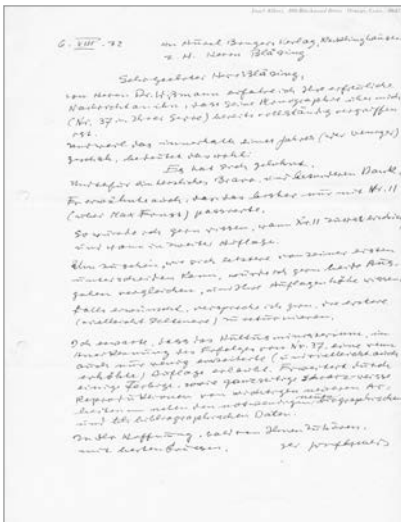 6. VIII. 72 An Aurel Bongers Verlag, Recklinghausen
z. H. Herrn Bläsing
Sehr geehrter Herr Bläsing,
von Herrn Dr. Wißmann erfahre ich Ihre erfreuliche
Nachricht an ihn, dass seine Monographie über mich
(Nr. 37 in Ihrer Serie) bereits vollständig vergriffen
ist.
Und weil das innerhalb eines Jahres (oder weniger)
geschah, bedeutet das wohl:
Es hat sich gelohnt.
Und dafür ein herzliches Bravo, und besonderen Dank.
Er erwähnte auch, dass das bisher nur mit Nr. 11
(über Max Ernst) passierte.
So würde ich gern wissen, wann Nr. 11 zuerst erschien
und wann in zweiter Auflage.
Um zu sehen, wie sich letztere von seiner ersten
unterscheiden kann, würde ich gern beide Aus-
gaben vergleichen, und Ihre Auflagenhöhe wissen.
Falls erwünscht, verspreche ich gern, die erstere
(vielleicht seltenere) zu retournieren.
Ich erwarte, dass das Kultusministerium, in
Anerkennung des Erfolges von Nr. 37, eine wenn
auch nur wenig erweiterte (und vielleicht auch
erhöhte) Auflage erlaubt. Erweitert durch
einige farbige, sowie ganzseitige Schwarz-weiss
Reproduktionen von wichtigen neueren Ar-
beiten neben den notwendigen biographischen
und bibliographischen Daten.
In der Hoffnung, bald von Ihnen zu hören,
mit besten Grüssen,